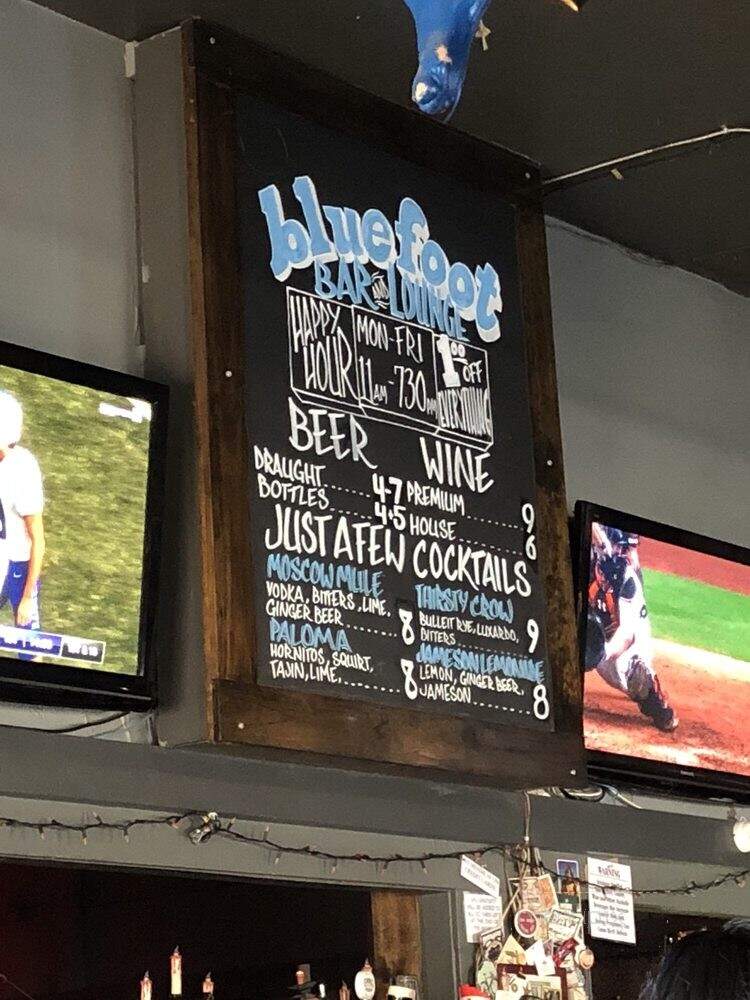 bluefoot
BAR AND LOUNGE
HAPPY HOUR
MON-FRI
11AM-730PM
1.00 OFF
EVERYTHING
BEER
DRAUGHT........4-7
BOTTLES........4-5
WINE
PREMIUM........9
HOUSE........6
JUST A FEW COCKTAILS
MOSCOW MULE
VODKA, BITTERS, LIME,
GINGER BEER........8
PALOMA
HORNITOS, SQUIRT,
TAJIN, LIME,........8
THIRSTY CROW
BULLEIT RYE, LUXARDO,
BITTERS........9
JAMESON LEMONADE
LEMON, GINGER BEER,
JAMESON........8
WARNING